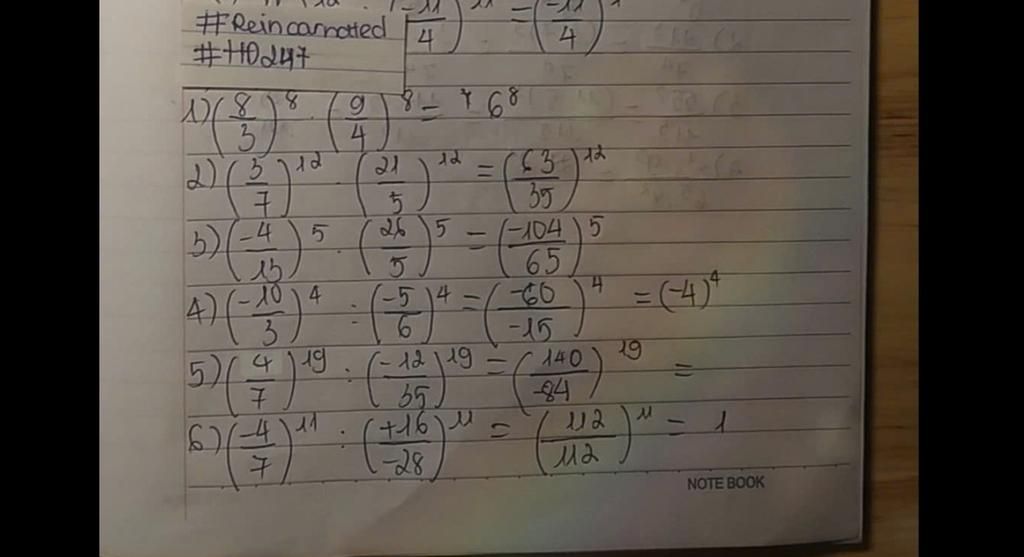 (-11/4)^11 = (-11/4)
#Reincarnatted
#HD247
1) (8/3)^8 · (9/4)^8 = 6^8
2) (3/7)^12 · (21/5)^12 = (63/35)^12
3) (-4/13)^5 · (26/5)^5 = (-104/65)^5
4) (-10/3)^4 : (-5/6)^4 = (-60/-15)^4 = (-4)^4
5) (4/7)^19 : (-12/35)^19 = (140/-84)^19 =
6) (-4/7)^11 : (+16/-28)^11 = (112/112)^11 = 1
NOTE BOOK